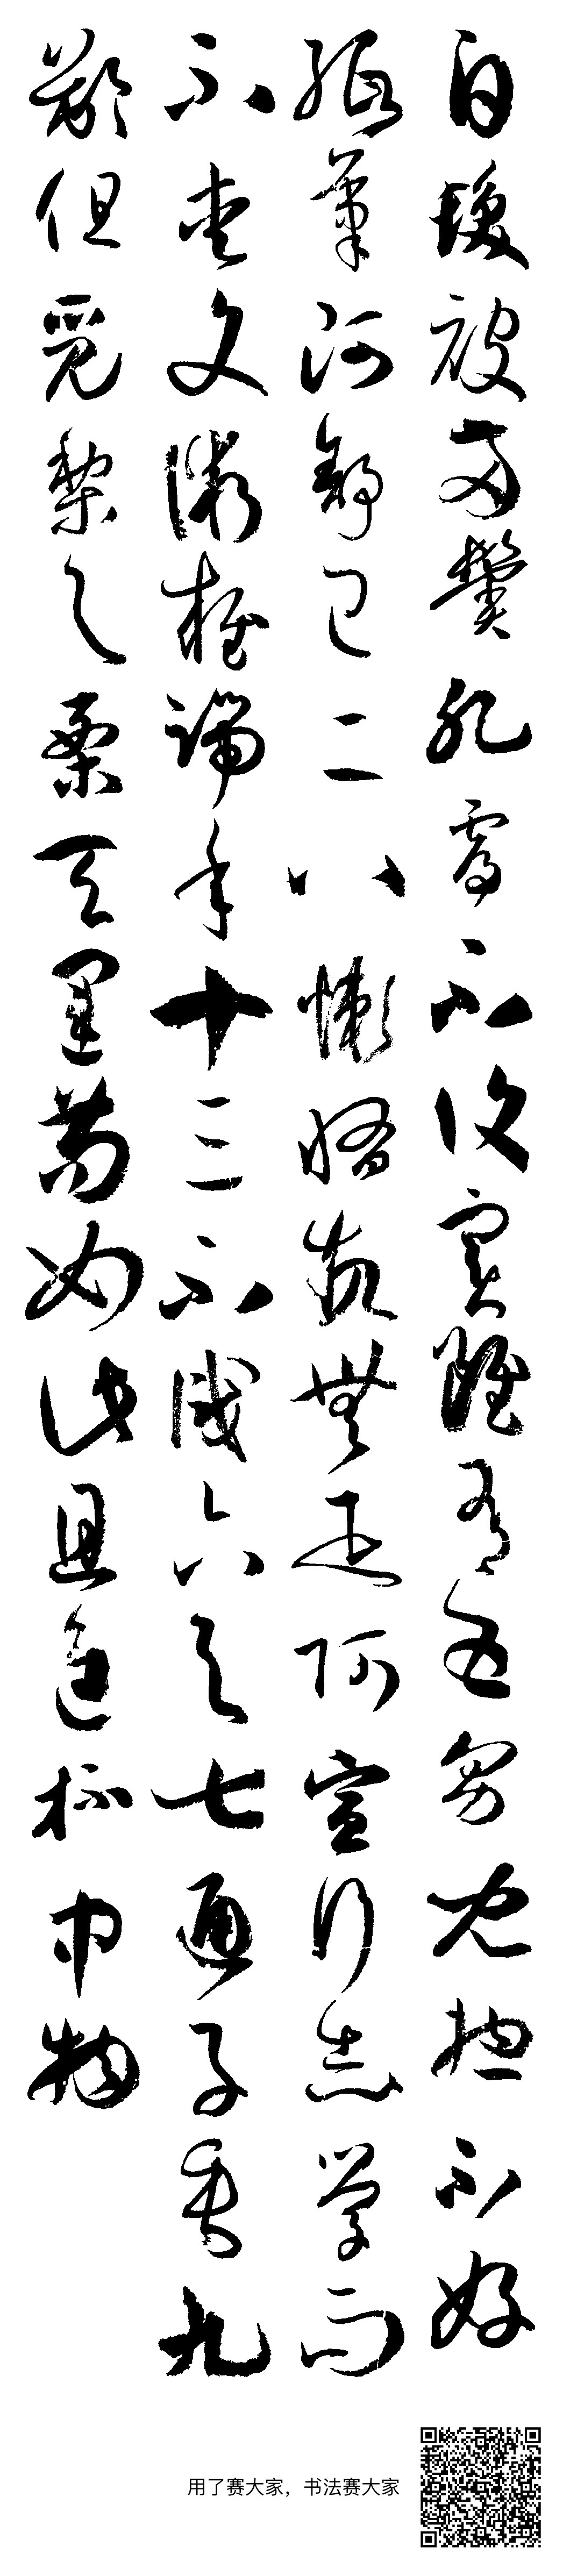 白髮被兩鬢肌膚不復實雖有五男兒總不好
紙筆阿舒已二八懶惰故無匹阿宣行志學而
不愛文術雍端年十三不識六與七通子垂九
齡但覓梨與栗天運苟如此且進杯中物
用了赛大家，书法赛大家